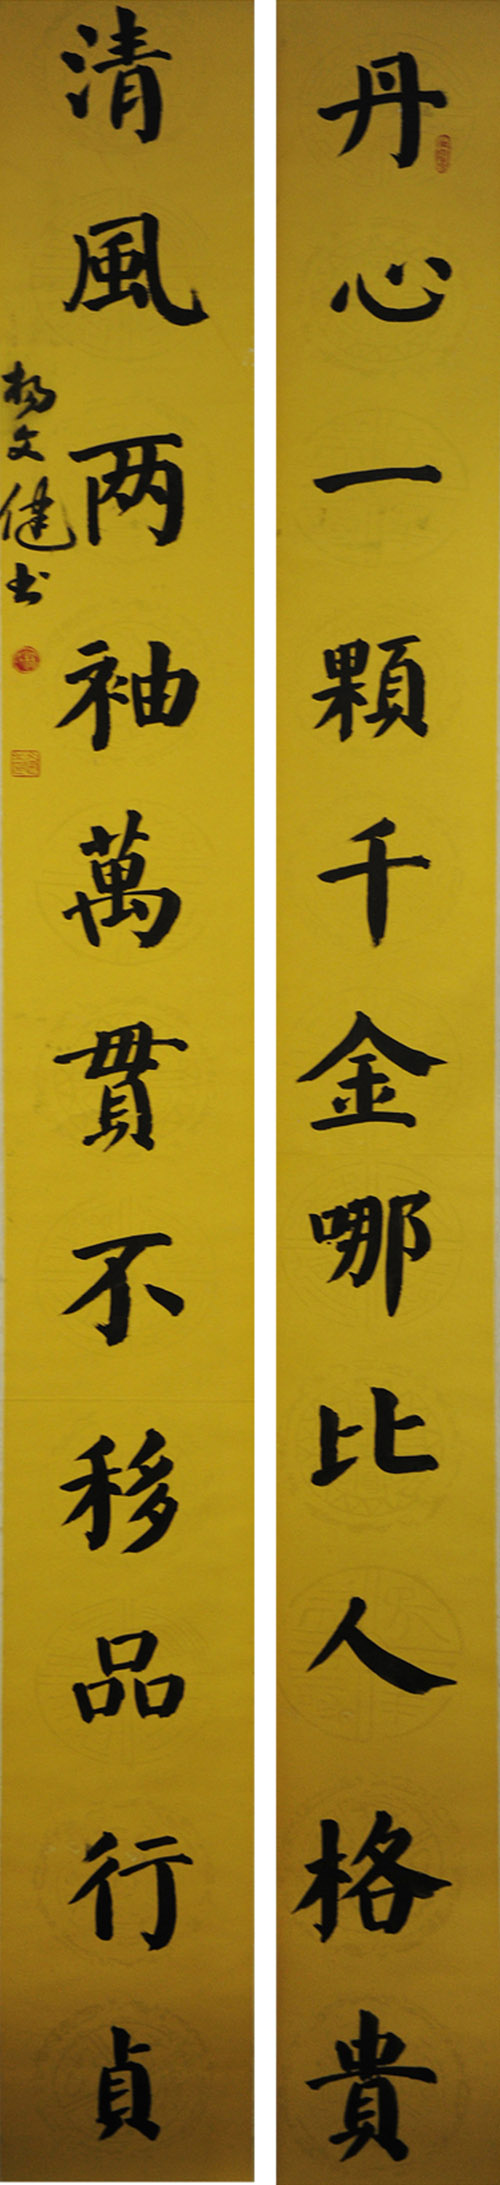 丹心一顆千金哪比人格貴
清風两袖萬貫不移品行貞
杨文健书